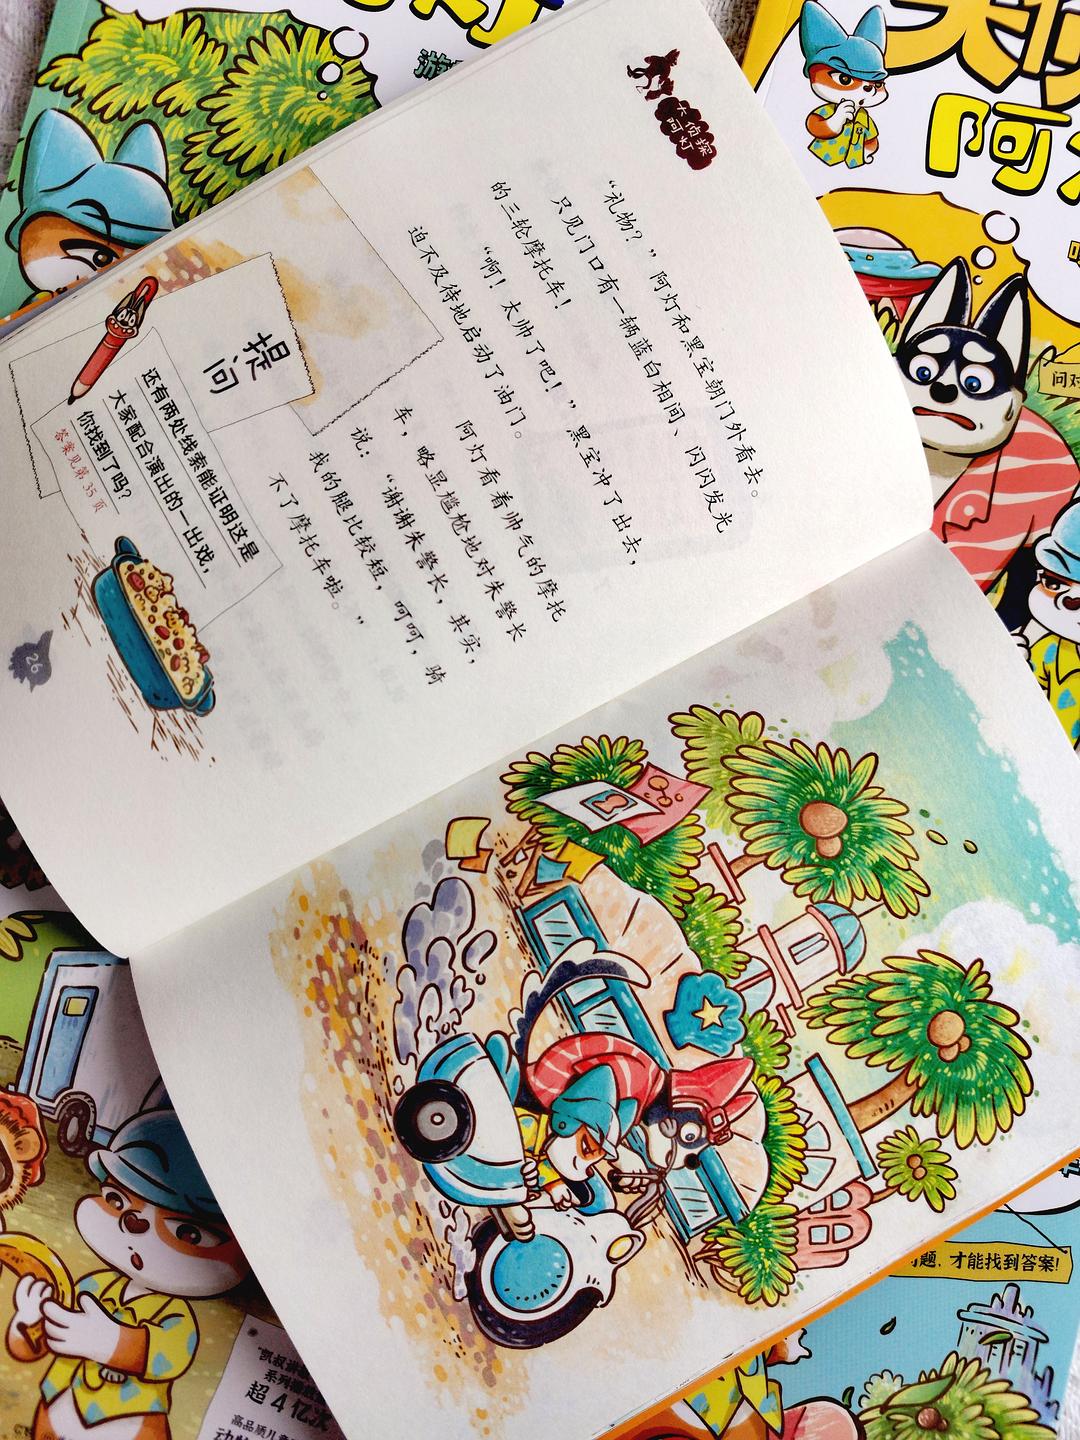 大侦探
阿灯
“礼物？”阿灯和黑宝朝门外看去。
只见门口有一辆蓝白相间、闪闪发光
的三轮摩托车！
“啊！太帅了吧！”黑宝冲了出去，
迫不及待地启动了油门。
阿灯看看帅气的摩托
车，略显尴尬地对朱警长
说：“谢谢朱警长，其实，
我的腿比较短，呵呵，骑
不了摩托车啦。”
提问
还有两处线索能证明这是
大家配合演出的一出戏，
你找到了吗？
答案见第 35 页
26
阿
问对
题，才能找到答案！
超4亿次